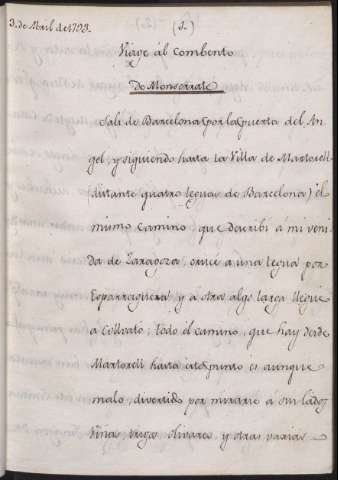 3. de Abril de 1793.
(1.)
Viage ál Combento
De Monserrate
Sali de Barcelona por la puerta del An
gel, y siguiendo hasta la Villa de Martorell
(distante quatro leguas de Barcelona) él
mismo Camino, que describí á mi veni
da de Zaragoza, cruce a una legua por
Esparraguera, y á otra algo larga llegué
a Collvató; todo él camino, que hay desde
Martorell hasta este punto és aunque
malo, divertido por mirarse á sus lados
Viñas, trigos, olivares, y otras varias